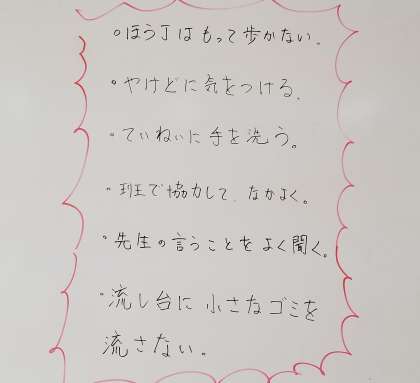 ○ほう丁はもって歩かない。
○やけどに気をつける。
○ていねいに手を洗う。
○班で協力して、なかよく。
○先生の言うことをよく聞く。
○流し台に小さなゴミを
流さない。